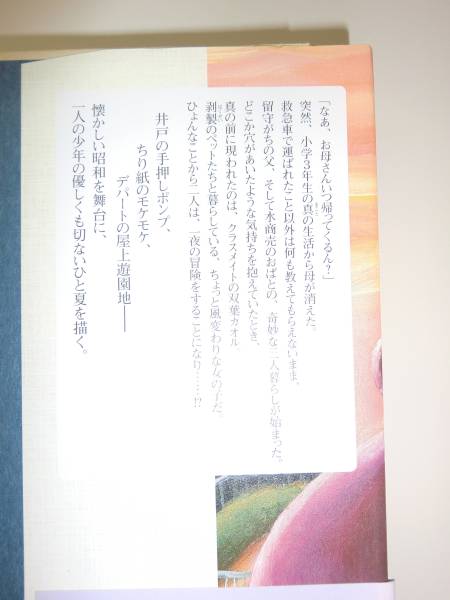 「なあ、お母さんいつ帰ってくるん?」
突然、小学3年生の真の生活から母が消えた。
救急車で運ばれたこと以外は何も教えてもらえないまま、
留守がちの父、そして水商売のおばとの、奇妙な三人暮らしが始まった。
どこか穴があいたような気持ちを抱えていたとき、
真の前に現われたのは、クラスメイトの双葉カオル。
剥製のペットたちと暮らしている、ちょっと風変わりな女の子だ。
ひょんなことから二人は、一夜の冒険をすることになり……!?
井戸の手押しポンプ、
ちり紙のモケモケ、
デパートの屋上遊園地――
懐かしい昭和を舞台に、
一人の少年の優しくも切ないひと夏を描く。